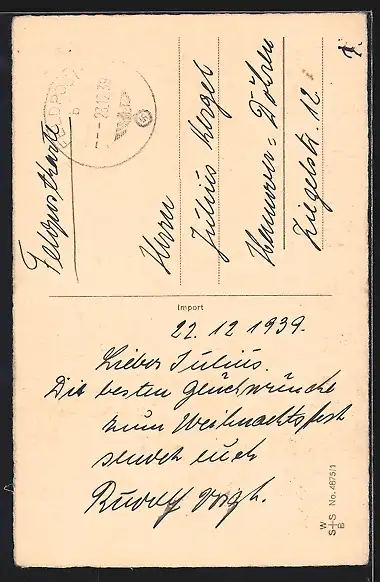 Feldpostkarte
FELDPOST
b
--- 23.12.39
Herrn
Julius
Hannover-Döhren
Ziegelstr. 12
Import
22. 12 1939.
Lieber Julius.
Die besten Glückwünsche
zum Weihnachtsfest
sendet euch
Rudolf Voigt.
W
S+S No. 4875/1
B